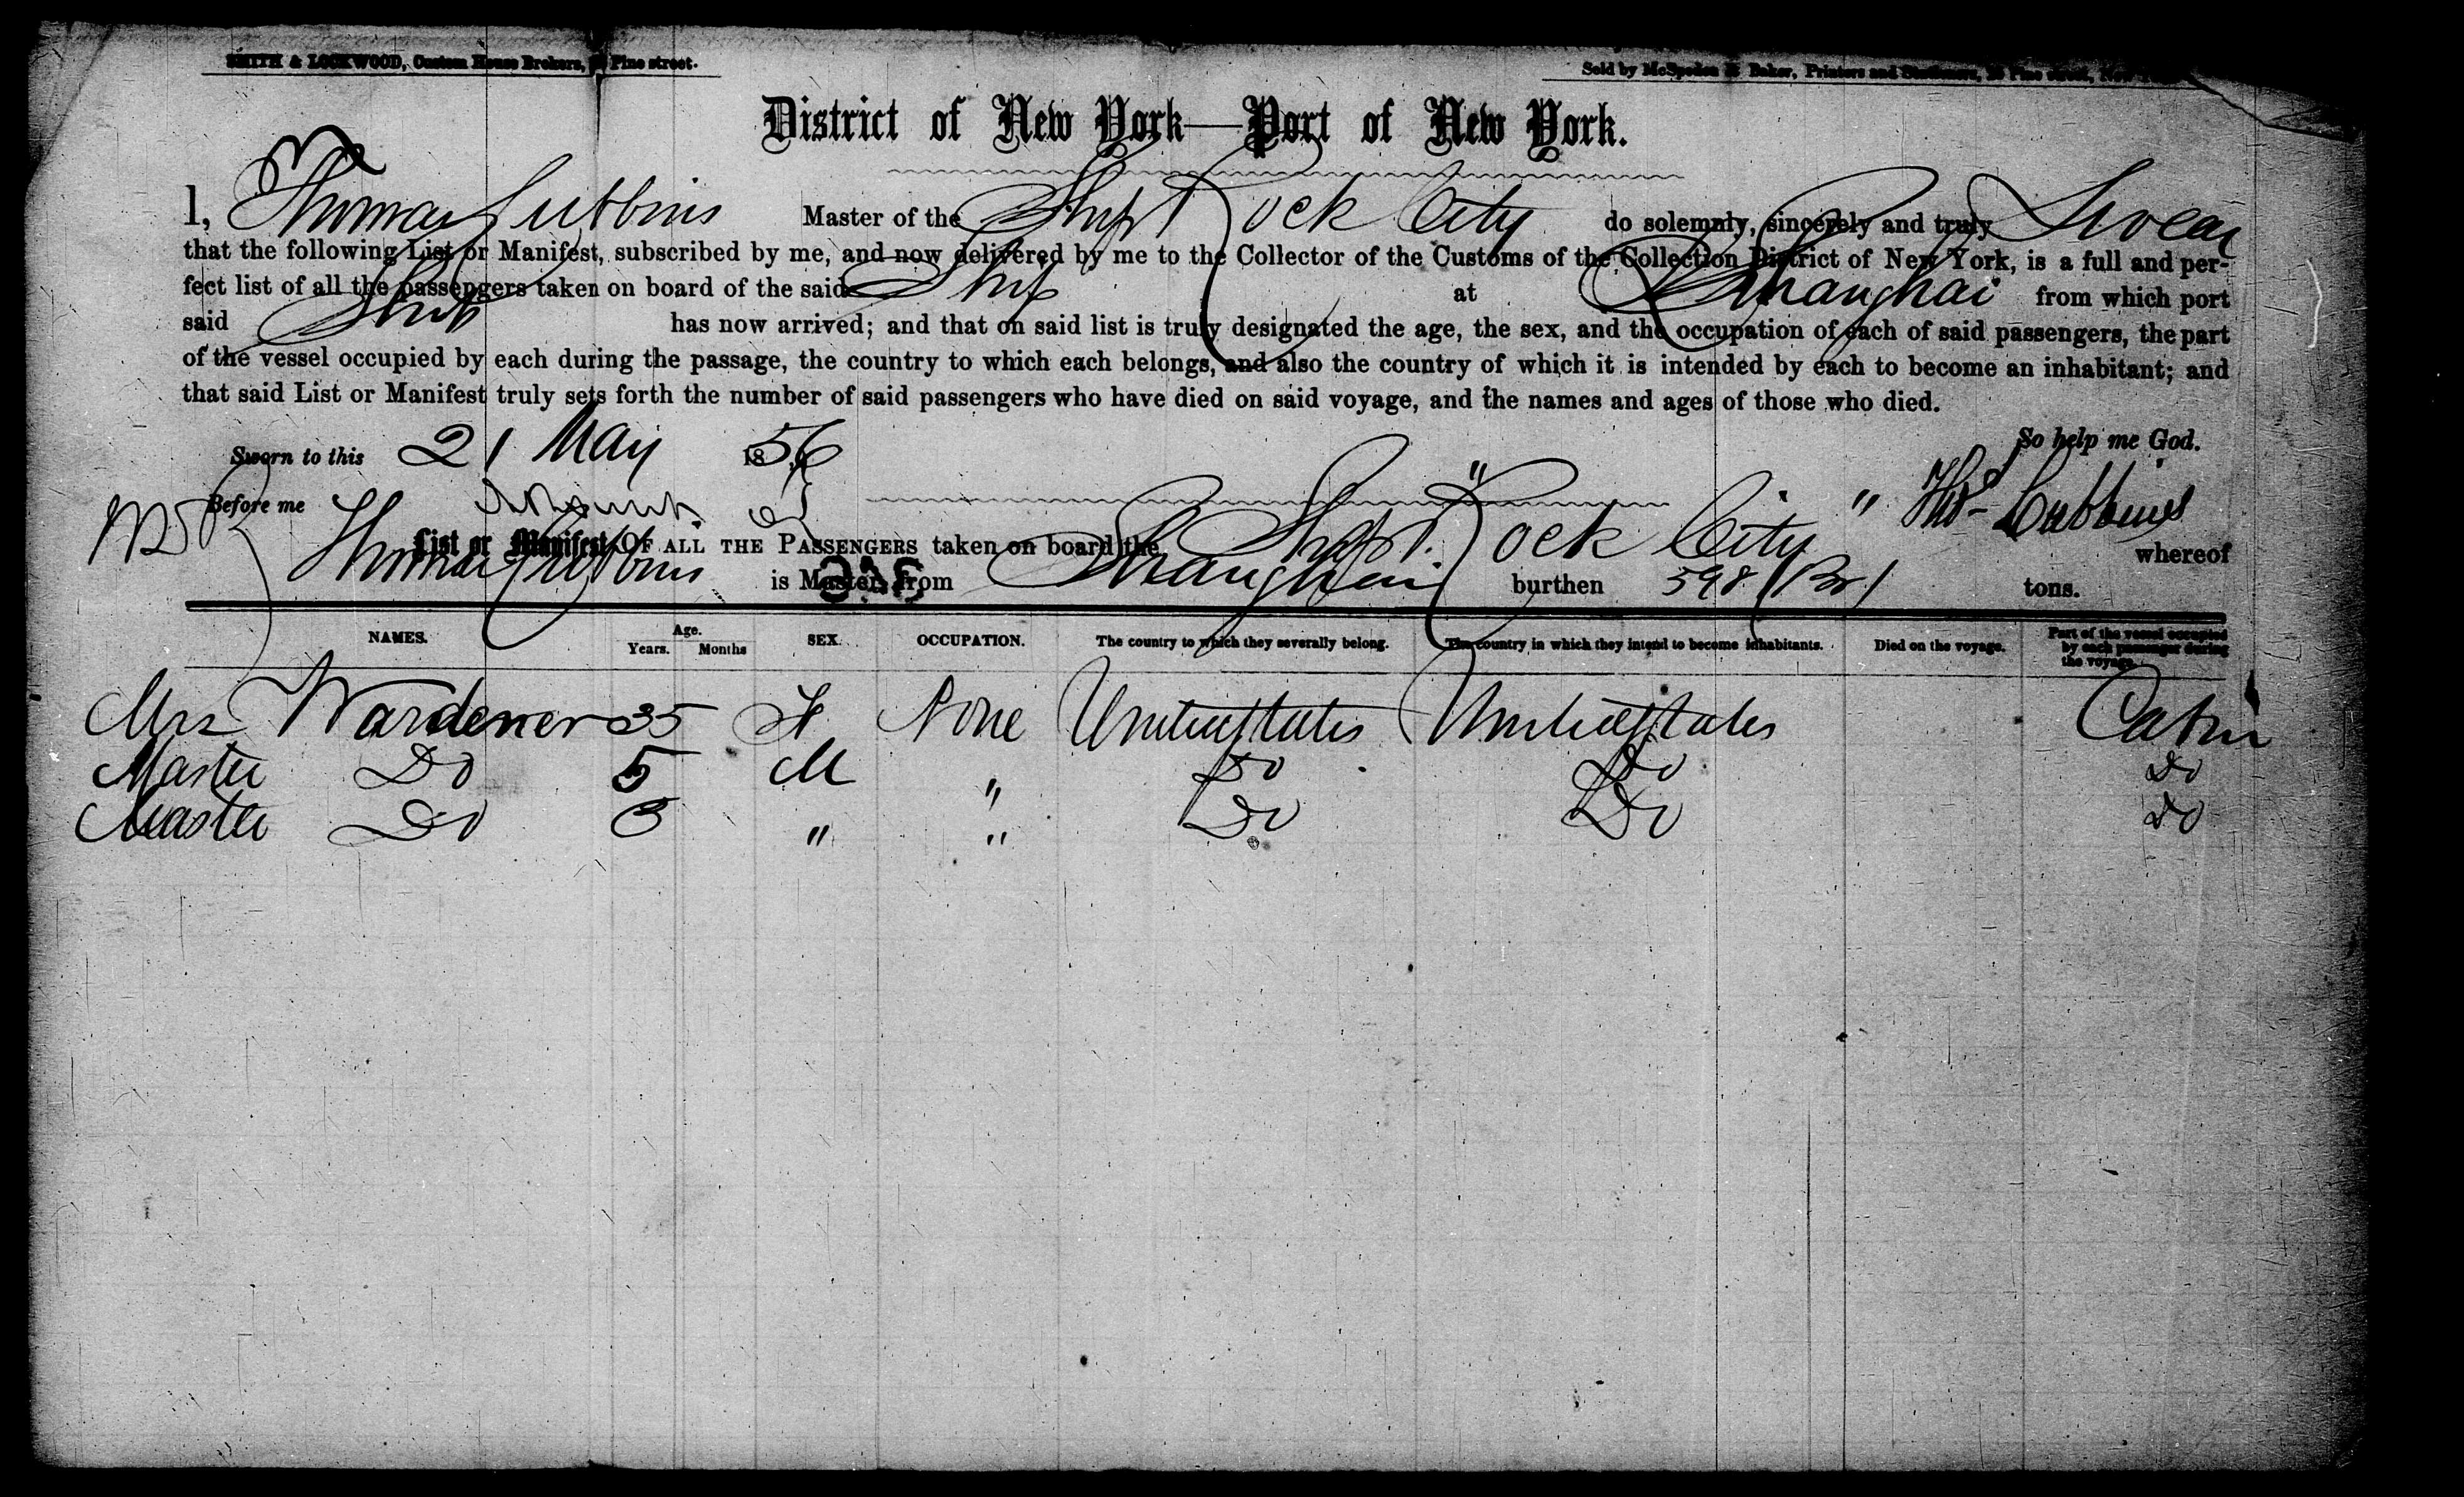 SMITH & LOCKWOOD, Custom House Brokers, Pine street.
Sold by McSpedon & Baker, Printers and Stationers, Pine street, New
District of New York—Port of New York.
I, Thomas Cubbins Master of the Ship Rock City do solemnly, sincerely and truly Swear
that the following List or Manifest, subscribed by me, and now delivered by me to the Collector of the Customs of the Collection District of New York, is a full and per-
fect list of all the passengers taken on board of the said Ship at Shanghai from which port
said Ship has now arrived; and that on said list is truly designated the age, the sex, and the occupation of each of said passengers, the part
of the vessel occupied by each during the passage, the country to which each belongs, and also the country of which it is intended by each to become an inhabitant; and
that said List or Manifest truly sets forth the number of said passengers who have died on said voyage, and the names and ages of those who died.
So help me God.
Sworn to this 21 May 1856
Before me
Thos Cubbins
List or Manifest OF ALL THE PASSENGERS taken on board the Ship "Rock City" whereof
Thomas Cubbins is Master, from Shanghai burthen 598 tons.
NAMES. Age. Years. Months SEX. OCCUPATION. The country to which they severally belong. The country in which they intend to become inhabitants. Died on the voyage. Part of the vessel occupied by each passenger during the voyage.
Mrs Wardener 35 F None United States United States Cabin
Master Do 5 M " Do Do Do
Master Do 3 " " Do Do Do